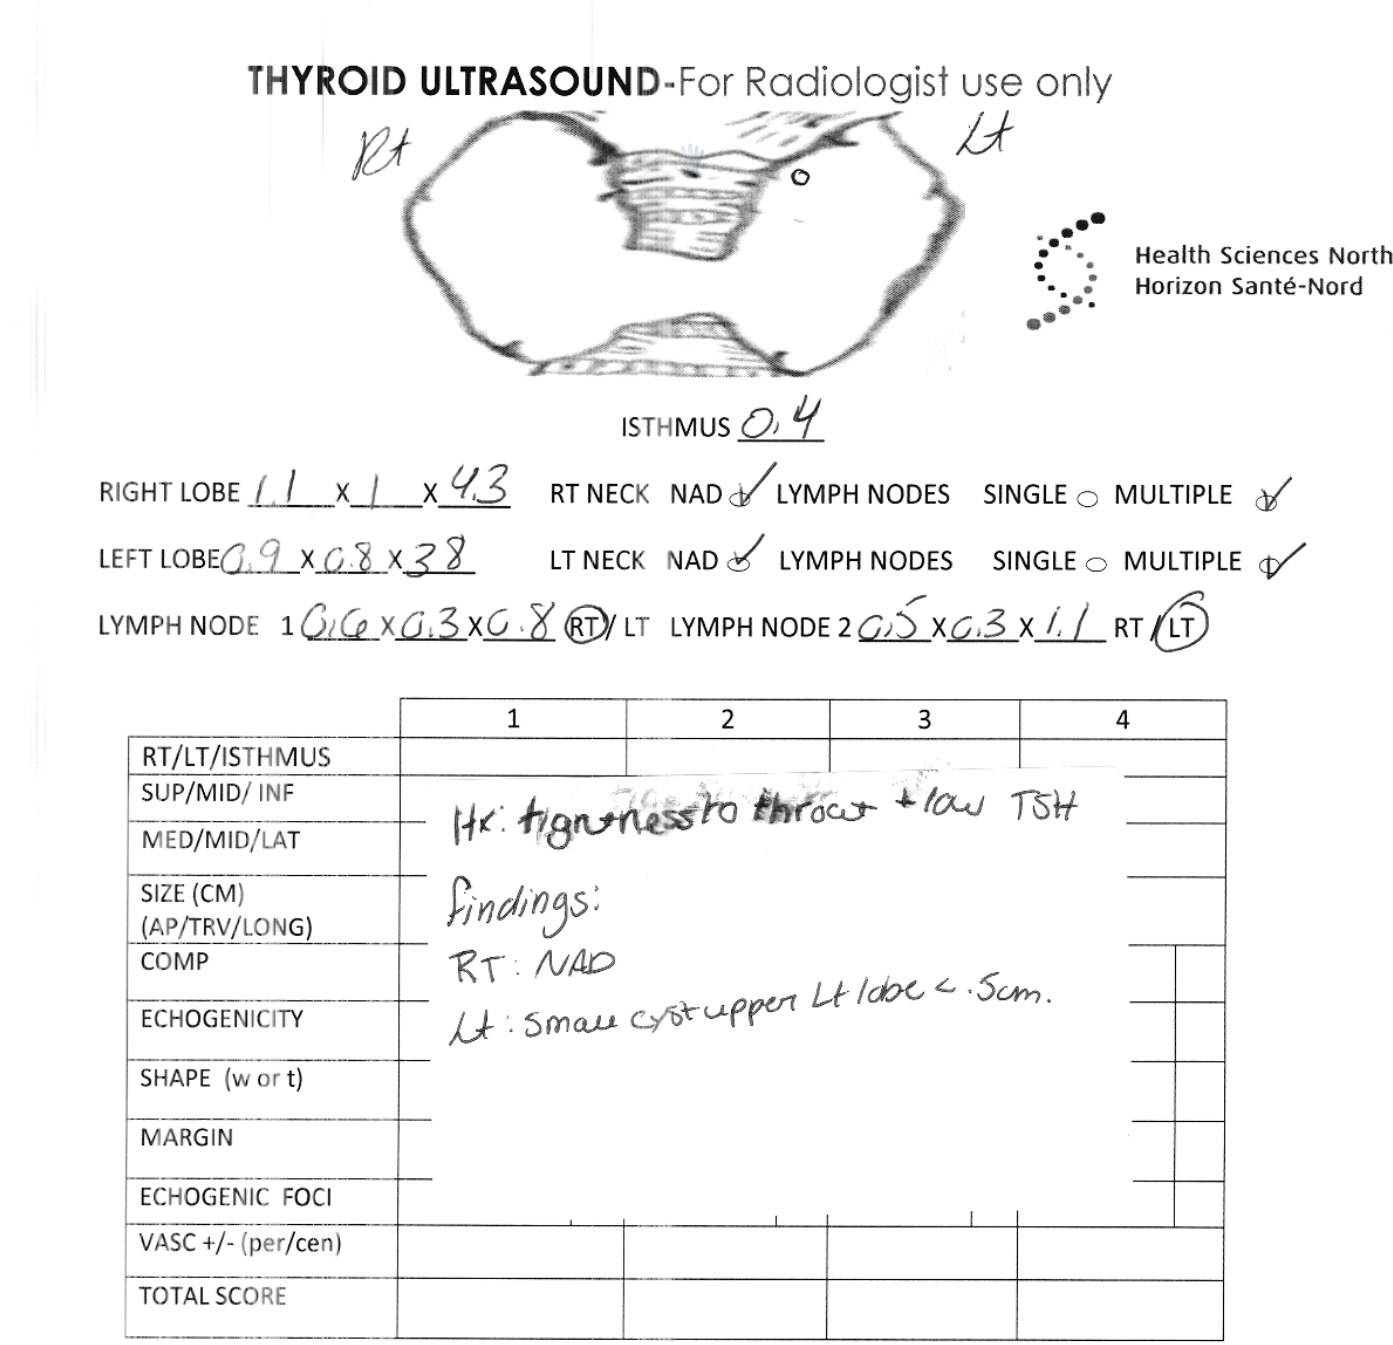 THYROID ULTRASOUND-For Radiologist use only
Rt Lt
Health Sciences North
Horizon Santé-Nord
ISTHMUS 0.4
RIGHT LOBE 1.1 X 1 X 4.3 RT NECK NAD LYMPH NODES SINGLE MULTIPLE
LEFT LOBE 0.9 X 0.8 X 38 LT NECK NAD LYMPH NODES SINGLE MULTIPLE
LYMPH NODE 1 0.6 X 0.3 X 0.8 RT / LT LYMPH NODE 2 0.5 X 0.3 X 1.1 RT / LT
1 2 3 4
RT/LT/ISTHMUS
SUP/MID/ INF
MED/MID/LAT
SIZE (CM)
(AP/TRV/LONG)
COMP
ECHOGENICITY
SHAPE (w or t)
MARGIN
ECHOGENIC FOCI
VASC +/- (per/cen)
TOTAL SCORE
Hx: tightness to throat + low TSH
findings:
RT: NAD
Lt: small cyst upper Lt lobe < .5cm.